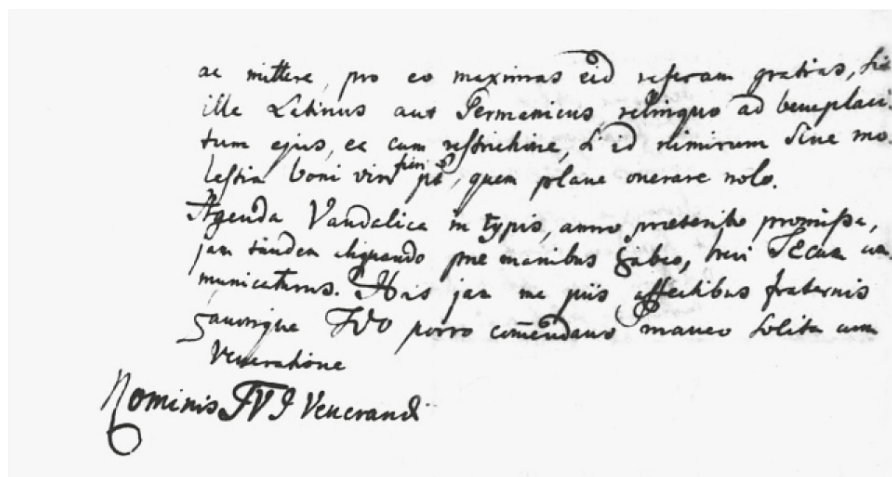 ac mittere, pro eo maximas eid referam gratias, sit
ille Latinus aut Germanicus, relinquo ad beneplaci-
tum ejus, ea cum restrictione, si id nimirum sine mo-
lestia boni viri fieri pt, quem plane onerare nolo.
Agenda Vandalica in typis, anno praeterito promissa,
jam tandem aliquando prae manibus habeo, brevi TEcum com-
municaturus. His jam me piis affectibus fraternis
favorique TVO porro comendans maneo solita cum
Veneratione
Nominis TVI Venerandi